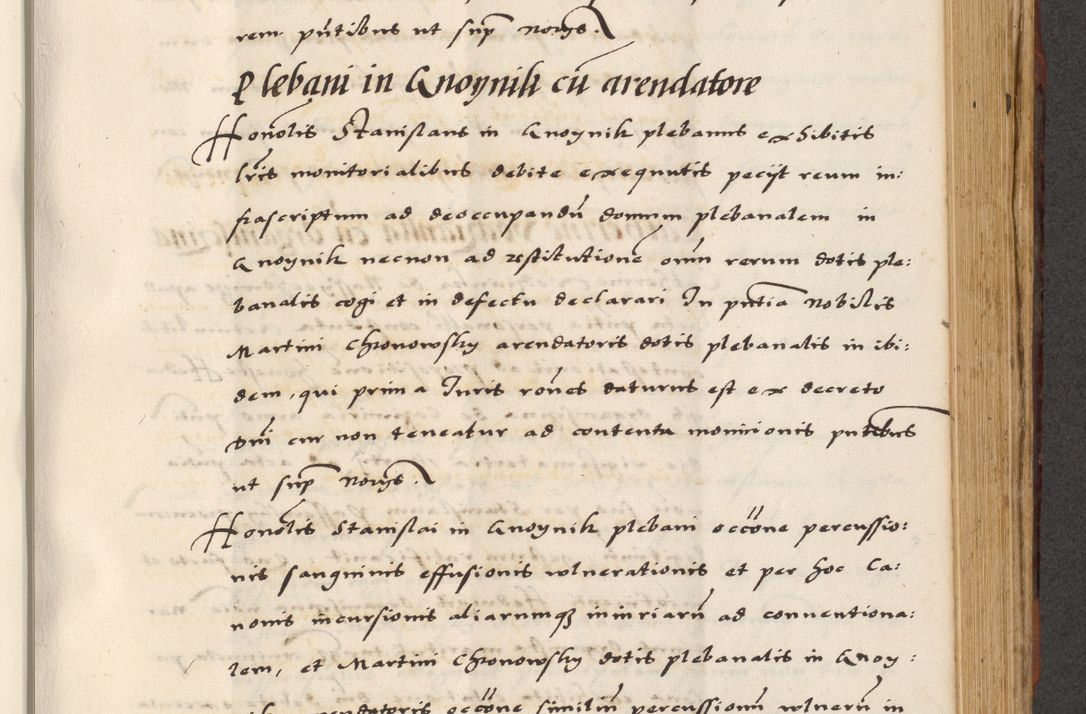 rem pñtibus ut sup̃ Notys.
Plebani in Gnoynik cũ arendatore
Honol̃is Stanislaus in Gnoynik plebanus exhibitis
lr̃is monitorialibus debite exequutis pecijt reum in:
frascriptum ad deoccupandũ domum plebanalem in
Gnoynik necnon ad restitutionẽ oĩm rerum dotis ple:
banalis cogi et in defectu declarari In pñtia Nobilis
Martini Chronowsky arendatoris dotis plebanalis in ibi:
dem, qui prima Iuris rõnes daturus est ex decreto
Dñi cur non teneatur ad contenta monicionis pñtibus
ut sup̃ Notys.
Honol̃is Stanislai in Gnoynik plebani occõne percussio:
nis sanguinis effusionis vulnerationis et per hoc Ca:
nonis incursionis aliarumq3 iniuriarũ ad conventiona:
lem, et Martini Chronowsky dotis plebanalis in Gnoy:
nik arendatoris occõne similiũ percussionũ vulnerũ in